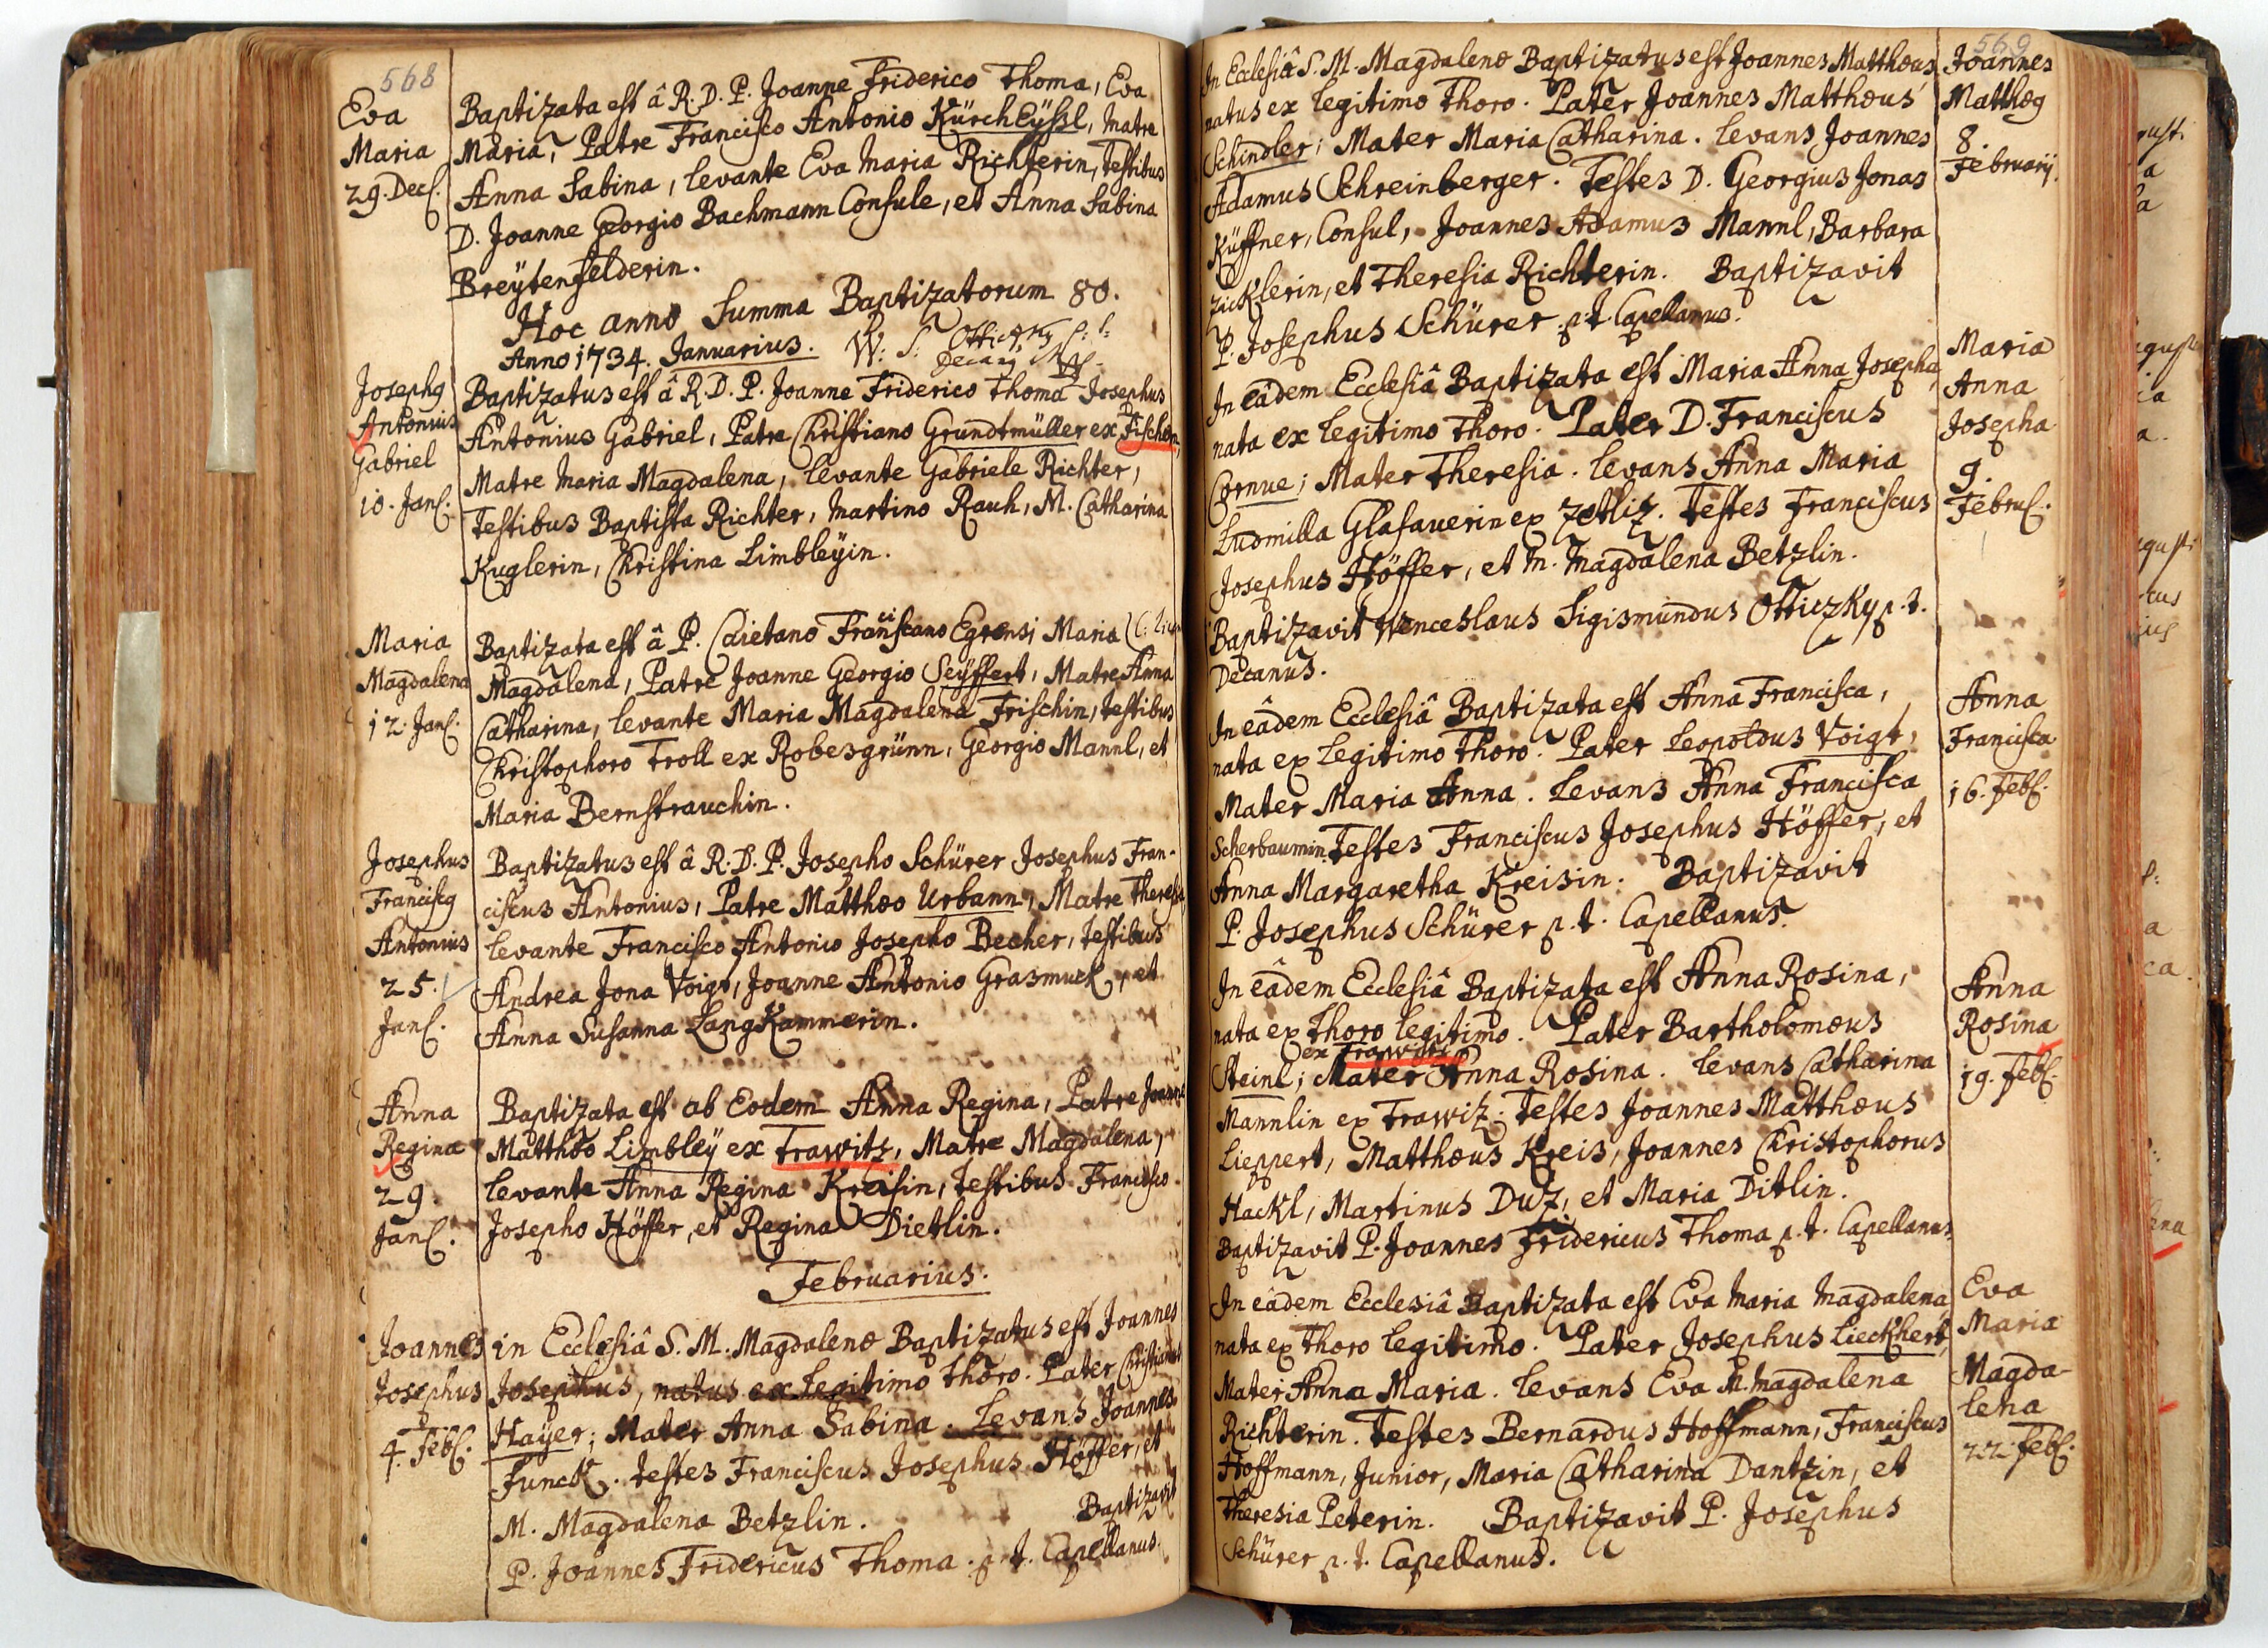 568
Eva
Maria
29. Decȩ.
Baptizata est â R. D. P. Joanne Friderico Thoma, Eva
Maria, Patre Francisco Antonio Kürchëÿsl, Matre
Anna Sabina, levante Eva Maria Richterin, testibus
D. Joanne Georgio Bachmann Consule, et Anna Sabina
Breÿtenfelderin.
Hoc anno Summa Baptizatorum 80.
Anno 1734. Januarius. W: S:
Josephg
Antonius
Gabriel
10. Jan.
Baptizatus est â R. D. P. Joanne Friderico Thoma Josephus
Antonius Gabriel, Patre Christiano Grundtmüller ex Fischern,
Matre Maria Magdalena, levante Gabriele Richter,
Testibus Baptista Richter, Martino Rauh, M. Catharina
Kuglerin, Christina Limbleÿin.
Maria
Magdalena
12. Jan.
Baptizata est â P. Caietano Franciscano Egrensi Maria
Magdalena, Patre Joanne Georgio Seÿffert, Matre Anna
Catharina, levante Maria Magdalena Frischin, testibus
Christophoro Troll ex Robesgrünn, Georgio Mannl, et
Maria Bernstrauchin.
Josephus
Franciscg
Antonius
25.
Jan.
Baptizatus est â R. D. P. Josepho Schürer Josephus Fran-
ciscus Antonius, Patre Matthæo Urbann, Matre Theresia
levante Francisco Antonio Josepho Becher, testibus
Andrea Jona Voigt, Joanne Antonio Grasmuck, et
Anna Susanna LangKammerin.
Anna
Regina
29.
Jan.
Baptizata est ab Eodem Anna Regina, Patre Joanne
Matthæo Limbleÿ ex Trawitz, Matre Magdalena,
levante Anna Regina Kreisin, testibus Francisco
Josepho Höffer, et Regina Dietlin.
Februarius.
Joannes
Josephus
4. Feb.
in Ecclesiâ S. M. Magdalenæ Baptizatus est Joannes
Josephus, natus ex legitimo thoro. Pater Christianus
Haÿer; Mater Anna Sabina. Levans Joannes
Funck. Testes Franciscus Josephus Höffer, et
M. Magdalena Betzlin. Baptizavit
P. Joannes Fridericus Thoma p. t. Capellanus.
569
In Ecclesiâ S. M. Magdalenæ Baptizatus est Joannes Matthæus
natus ex legitimo thoro. Pater Joannes Matthæus
Schindler; Mater Maria Catharina. Levans Joannes
Adamus Schreinberger. Testes D. Georgius Jonas
Küffner, Consul, Joannes Adamus Mannl, Barbara
Zicklerin, et Theresia Richterin. Baptizavit
P. Josephus Schürer p. t. Capellanus.
Joannes
Matthæg
8.
Februarij.
In eâdem Ecclesiâ Baptizata est Maria Anna Josepha,
nata ex legitimo thoro. Pater D. Franciscus
Cornue; Mater Theresia. Levans Anna Maria
Ludmilla Glasauerin ex Zetliz. Testes Franciscus
Josephus Höffer, et M. Magdalena Betzlin.
Baptizavit Wenceslaus Sigismundus Otticzky p. t.
Decanus.
Maria
Anna
Josepha
9.
Febru.
In eâdem Ecclesiâ Baptizata est Anna Francisca,
nata ex legitimo thoro. Pater Leopoldus Voigt,
Mater Maria Anna. Levans Anna Francisca
Scherbaumin. Testes Franciscus Josephus Höffer, et
Anna Margaretha Kreisin. Baptizavit
P. Josephus Schürer p. t. Capellanus.
Anna
Francisca
16. Feb.
In eâdem Ecclesiâ Baptizata est Anna Rosina,
nata ex thoro legitimo. Pater Bartholomæus
ex Trawitz
Steinl; Mater Anna Rosina. Levans Catharina
Mannlin ex Trawiz; Testes Joannes Matthæus
Lieppert, Matthæus Kreis, Joannes Christophorus
Hackl, Martinus Duz, et Maria Ditlin.
Baptizavit P. Joannes Fridericus Thoma p. t. Capellanus
Anna
Rosina
19. Feb.
In eâdem Ecclesiâ Baptizata est Eva Maria Magdalena
nata ex thoro legitimo. Pater Josephus Lieckhert,
Mater Anna Maria. Levans Eva M. Magdalena
Richterin. Testes Bernardus Hoffmann, Franciscus
Hoffmann, Junior, Maria Catharina Dantzin, et
Theresia Peterin. Baptizavit P. Josephus
Schürer p. t. Capellanus.
Eva
Maria
Magda-
lena
22. Feb.